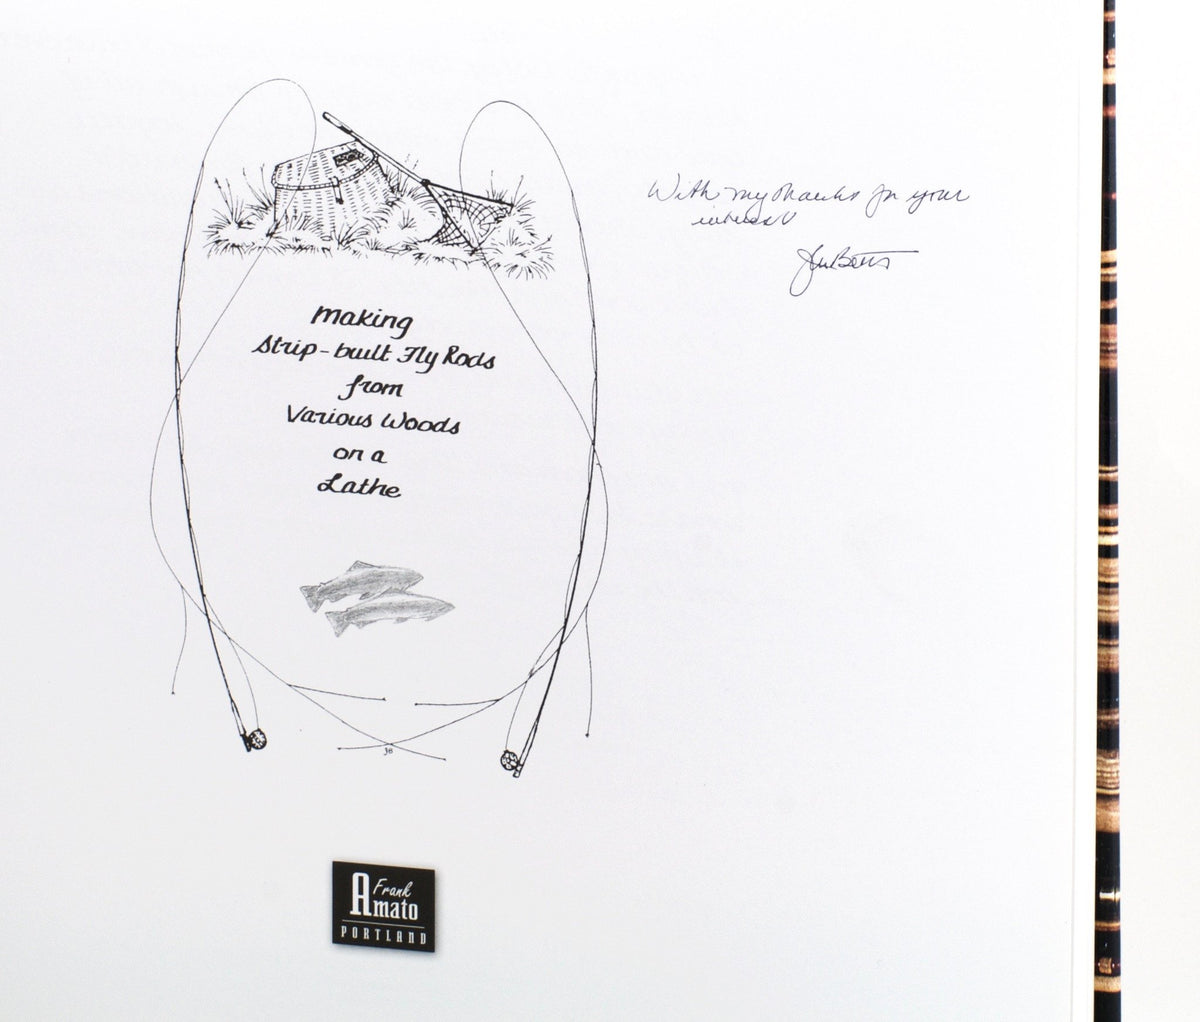 With my thanks for your
interest
John Betts
Making
Strip-built Fly Rods
from
Various Woods
on a
Lathe
JB
Frank
Amato
PORTLAND